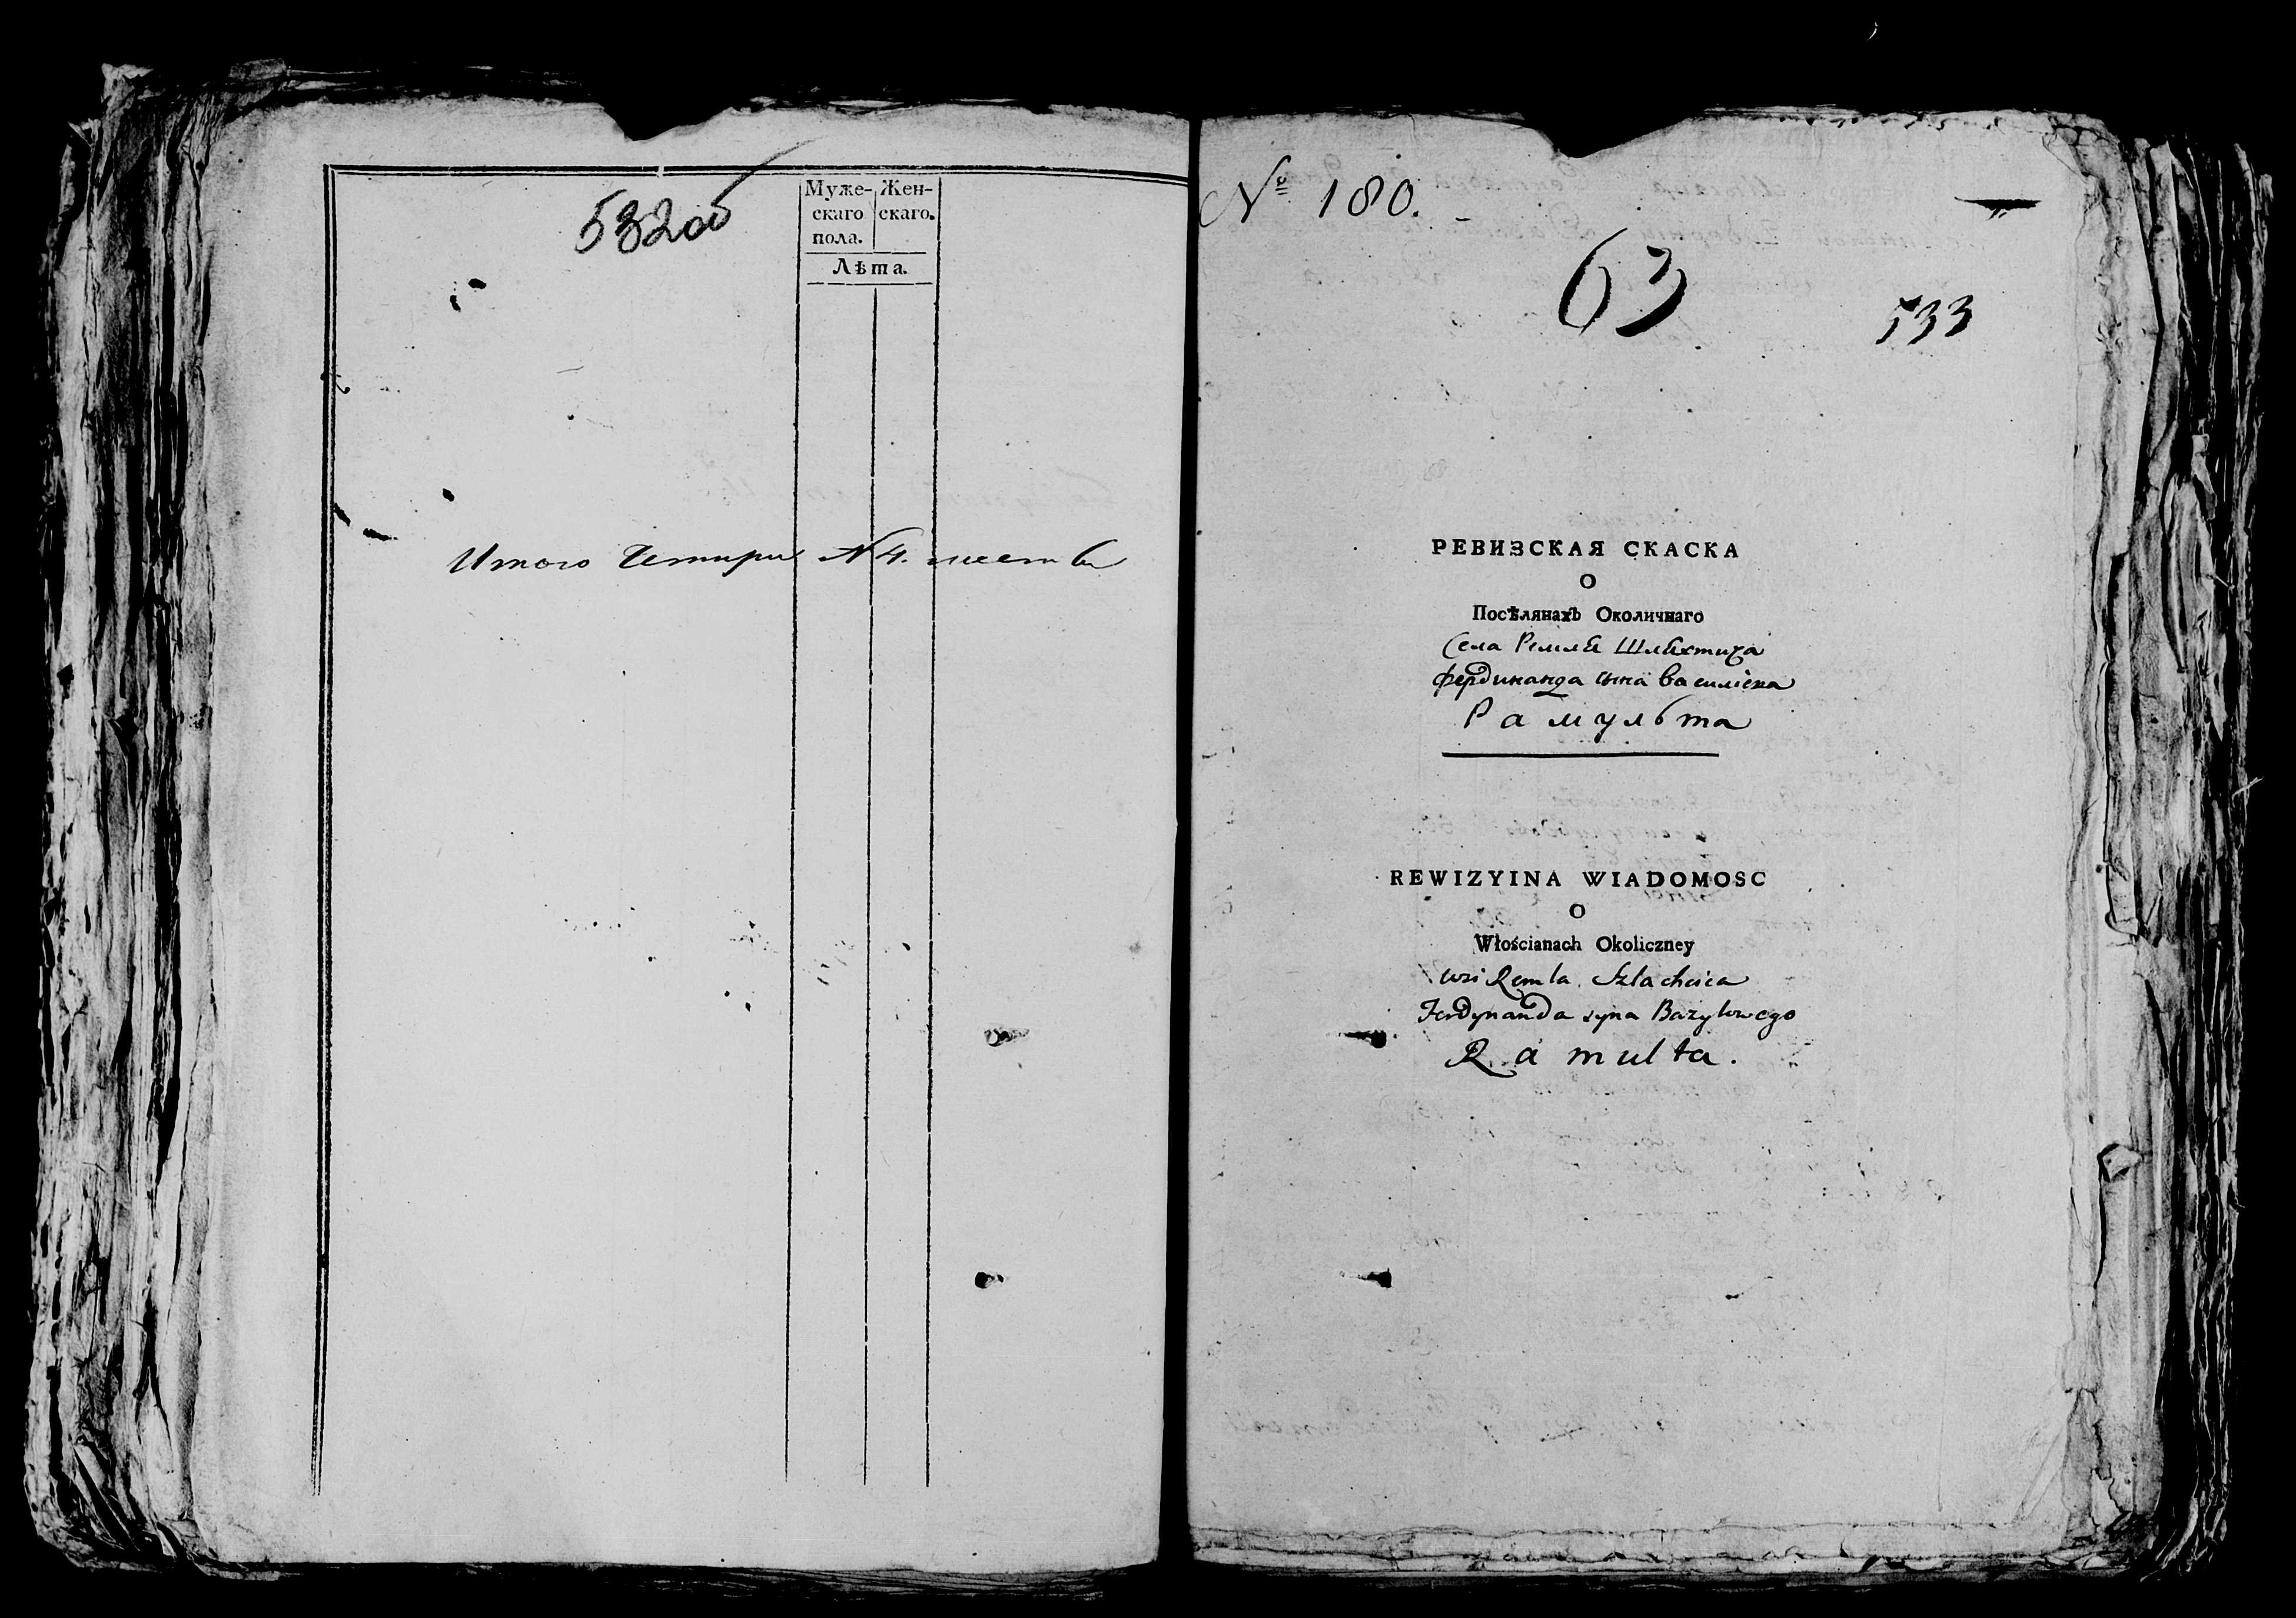 532об
Муже- Жен-
скаго скаго.
пола.
Лѣта.
Итого Четыри N 4. листа
№ 180.
63
533
РЕВИЗСКАЯ СКАСКА
О
Посѣлянахъ Околичнаго
Села Ремля Шляхтича
Фердинанда сына Василіева
Рамульта
REWIZYINA WIADOMOSC
O
Włościanach Okoliczney
wsi Remla Szlachcica
Ferdynanda syna Bazylowego
Ramulta.